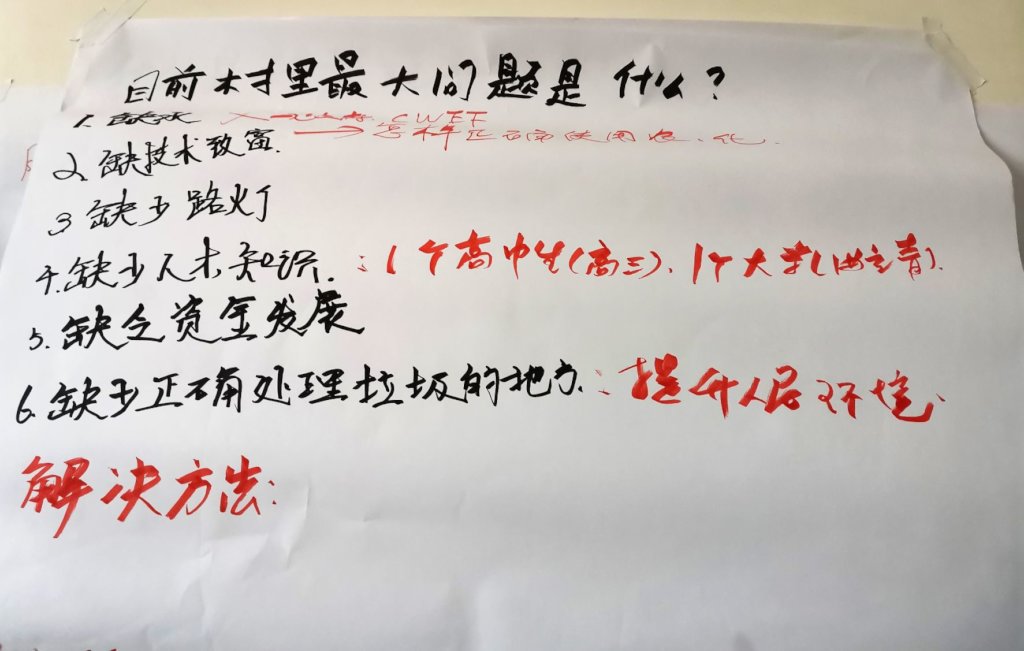 目前村里最大问题是什么?
1. 缺水 CWEF
→怎样正确使用 化.
2. 缺技术致富.
3 缺少路灯
4. 缺少人才知识. : 1个高中生(高三)、1个大学( ).
5. 缺乏资金发展
6. 缺少正确处理垃圾的地方. : 提升人居环境.
解决方法: